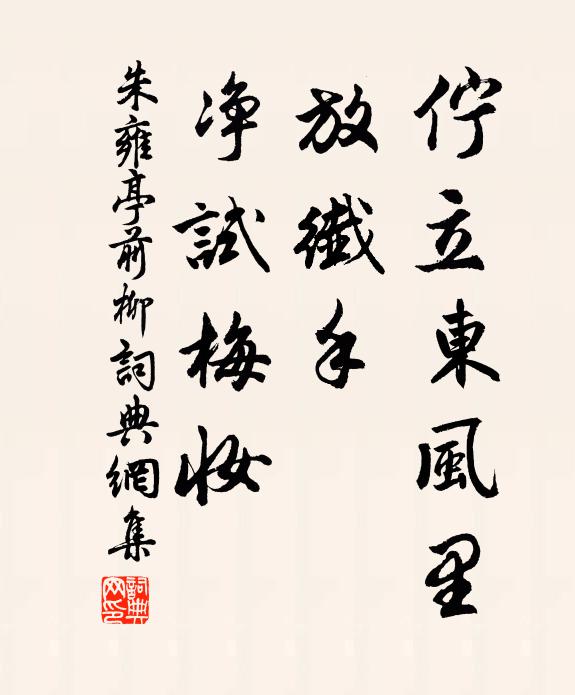 佇立東風里
放纖手
净試梅妝
朱雍亭前柳詞典網集
詞典网印